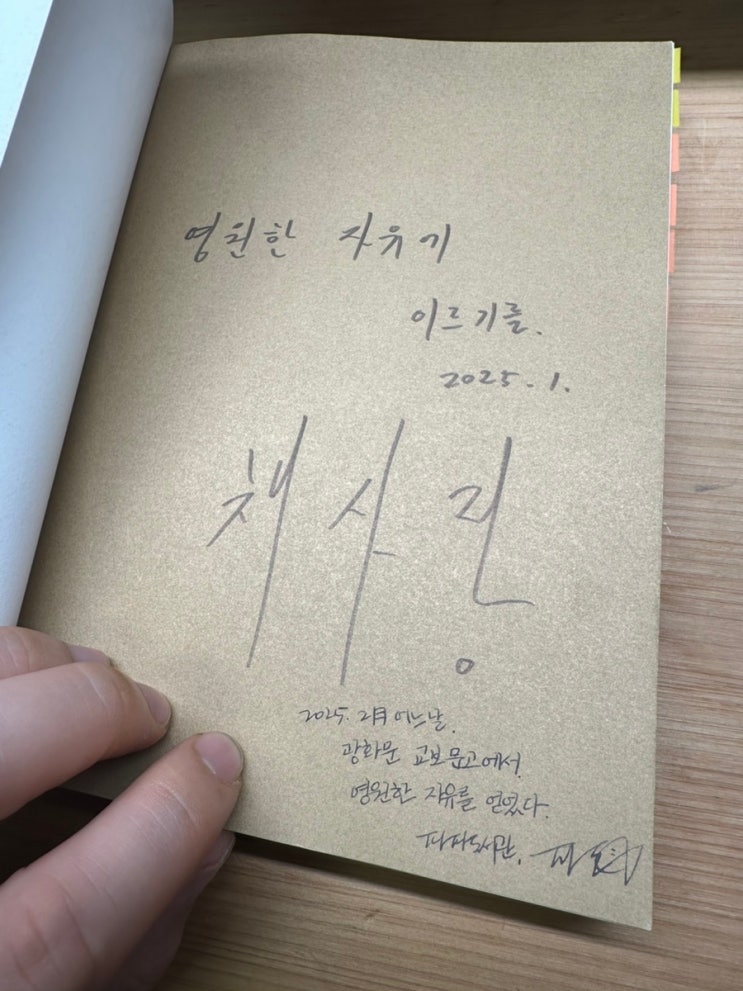 영원한 자유기
이르기를.
2025. 1.
채사장
2025. 2月 어느날.
광화문 교보문고에서
영원한 자유를 얻었다.
파파도서관,